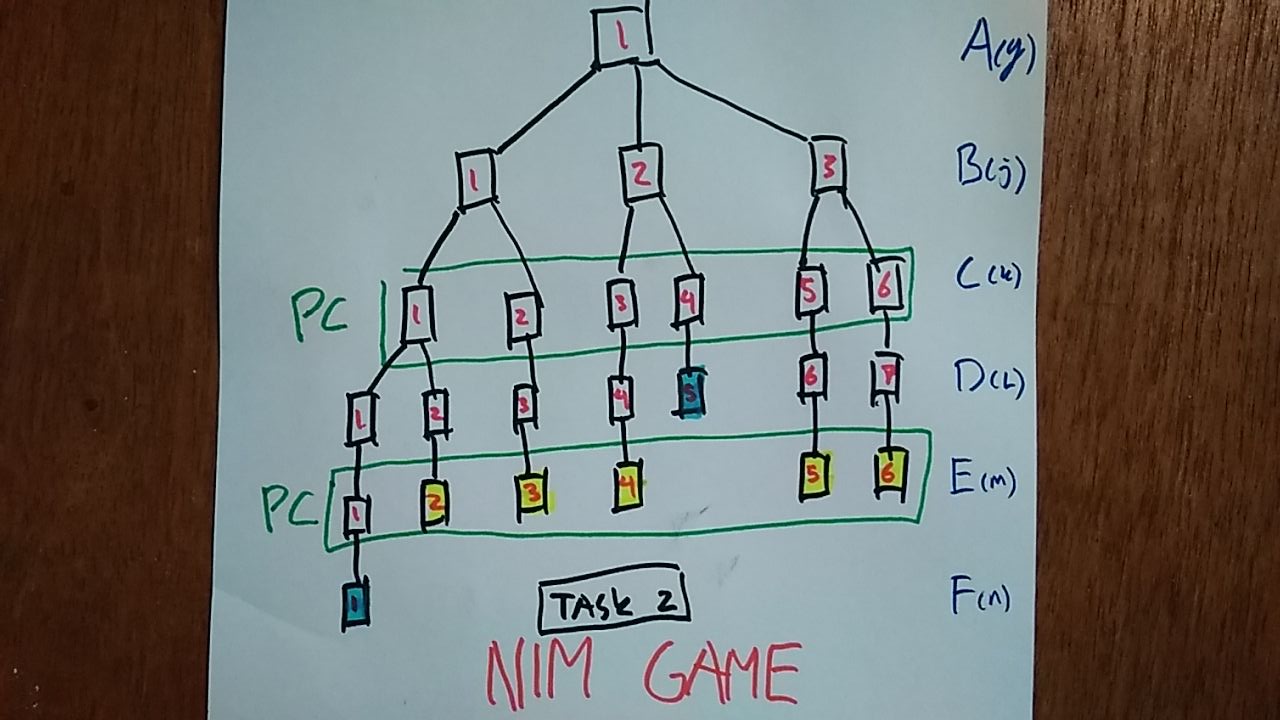 1 A(y)
1 2 3 B(j)
PC 1 2 3 4 5 6 C(k)
1 2 3 4 5 6 7 D(L)
PC 1 2 3 4 5 6 E(m)
1 F(n)
TASK 2
NIM GAME